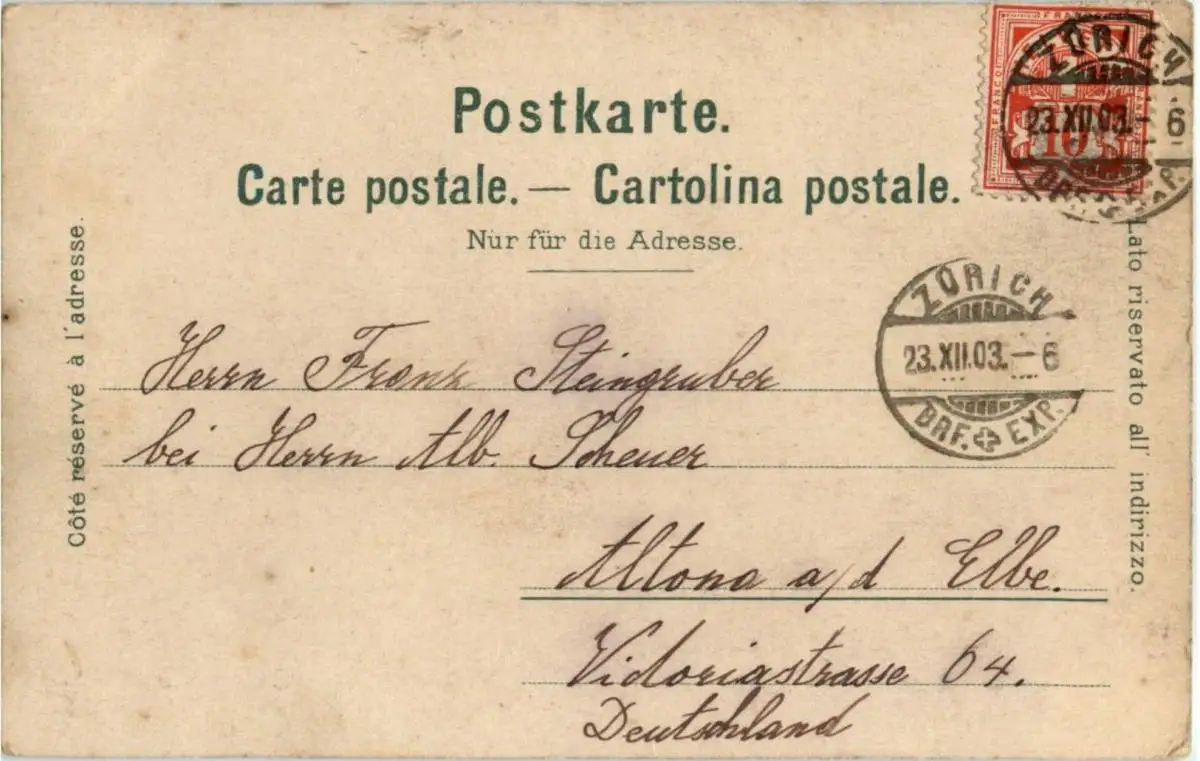 Postkarte.
Carte postale. — Cartolina postale.
Nur für die Adresse.
Côté réservé à l'adresse.
Lato riservato all' indirizzo.
FRANCO
10
ZÜRICH
23.XII.03.–6
BRF. EXP.
ZÜRICH
23.XII.03.–6
BRF. EXP.
Herrn Franz Steingruber
bei Herrn Alb. Scheuer
Altona a/d Elbe.
Victoriastrasse 64.
Deutschland